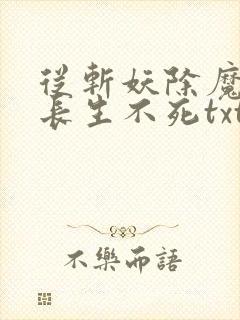 從斬妖除魔
長生不死txt
不樂而語